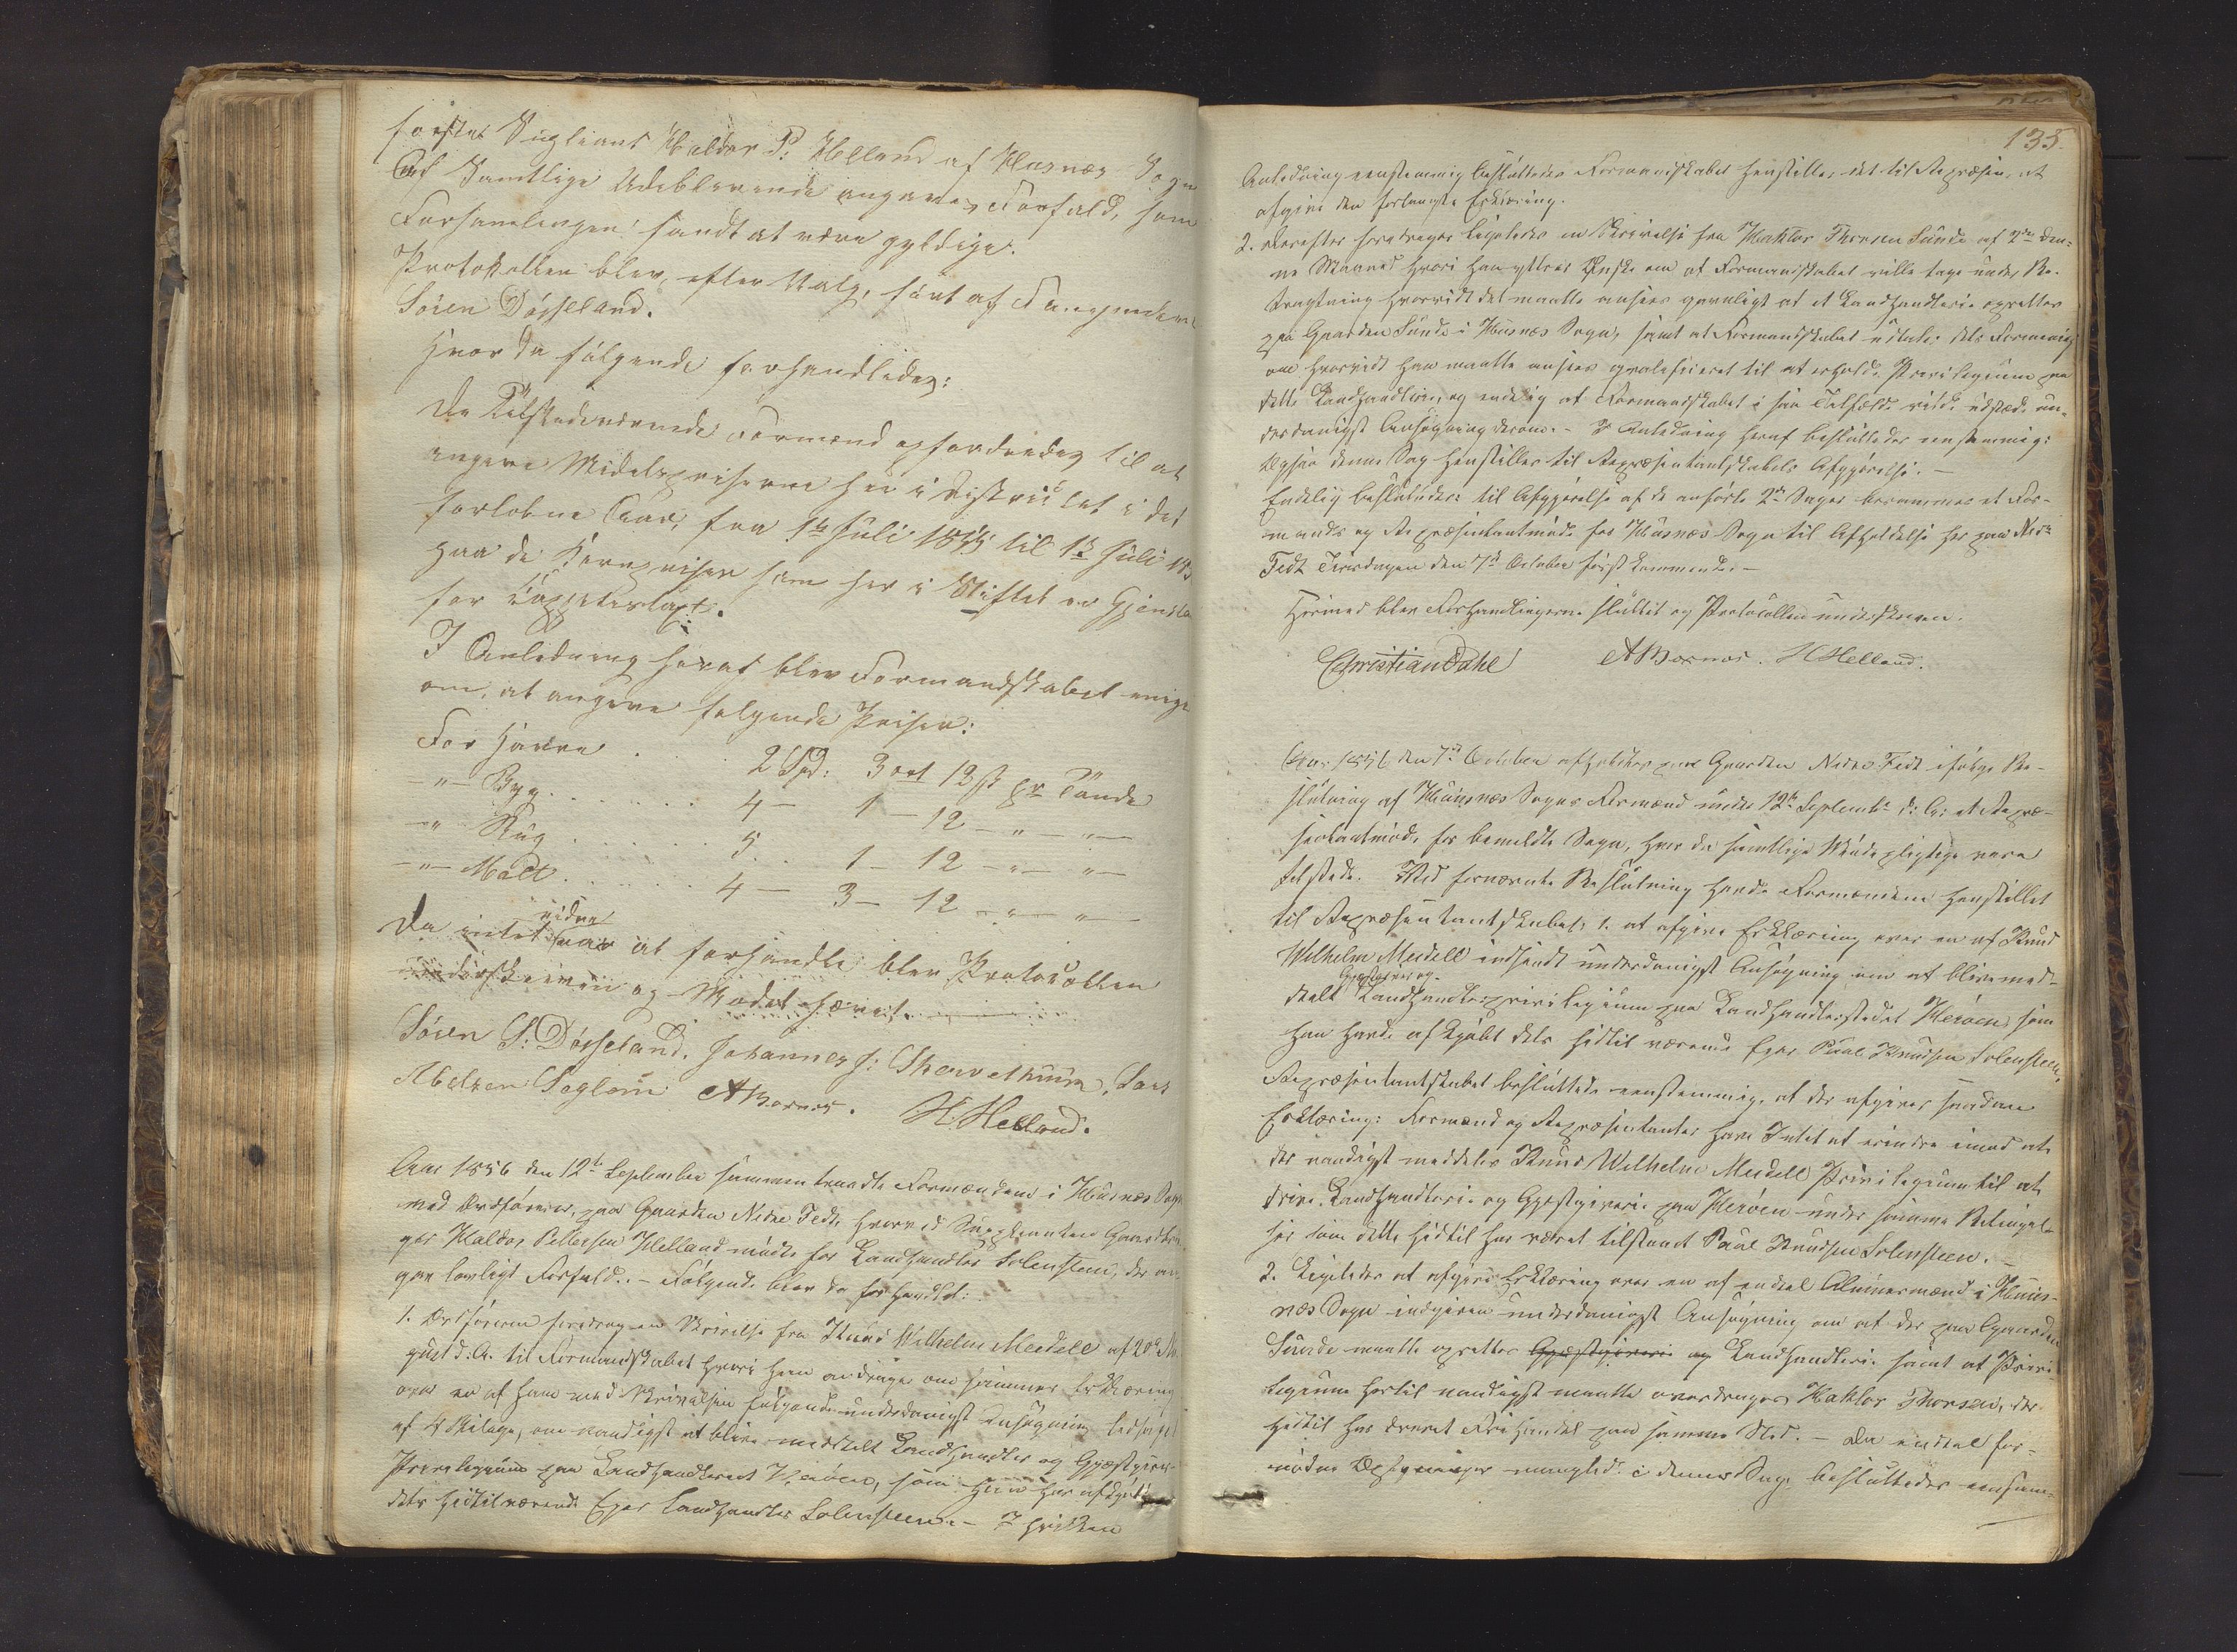 første Supliant Haldor P: Helland af Husnæs Sogn
Af Samtlige Udeblevende angaves Forfald, som
Forsamlingen fandt at være gyldige.
Protokollen blev, efter Valg, ført af
Sören Dösseland.
Hvor da følgende forhandledes:
De Tilstedeværende Formænd opfordredes til at
angive Middelpriserne her i Districtet i det
forløbne Aar, fra 1ste Juli 1855 til 1ste Juli
paa de Kornpriser som her i Stiftet er Gjenstand
for Capitelstaxt.
I Anledning heraf blev Formandskabet enige
om, at angive følgende Priser:
For Havre . . . 2 Spd: 3 ort 12 ß pr Tønde
–"– Byg . . . . . . 4 – 1 – 12 – " – " –
–"– Rug . . . . . . 5 . . 1 – 12 – " – " –
–"– Malt . . . . . . 4 – 3 – 12 – " – " –
Da intet videre var at forhandle, blev Protocollen
underskreven og Mødet hævet.
Sören S: Dösseland. Johannes J: Lars
A Børnes. H. Helland.
Aar 1856 den 12te September sammentraadte Formændene i Husnæs Sogn
med Ordføreren, paa Gaarden Nedre Fedt, hvorved Suppleanten Gaardbru-
ger Haldor Pettersen Helland mødte for Landhandler Solensteen, der an-
gav lovligt Forfald. – Følgende blev da forhandlet:
1. Ordføreren foredrog en Skrivelse fra Knud Wilhelm Meidell af 20de Au-
gust d: A. til Formandskabet hvori han andrager om sammes Erklæring
over en af ham med Skrivelsen følgende underdanigst Ansøgning ledsaget
af 4 Bilage, om naadigst at blive meddelt Landhandler og Gjæstgiver-
Privilegium paa Landhandleriet Herøen, som han har afkjøbt
dets hidtilværende Ejer Landhandler Solensteen. – I hvilken
135.
Anledning eenstemmig besluttedes Formandskabet henstiller det til Repræsen. at
afgive den forlangte Erklæring.
2. Derefter foredroges ligeledes en Skrivelse fra Haktor Thorsen Sunde af 2den den-
ne Maaned hvori han yttrer Ønske om at Formandskabet ville tage under Be-
tragtning hvorvidt det maatte ansees gavnligt at et Landhandleri oprettes
paa Gaarden Sunde i Husnæs Sogn, samt at Formandskabet udtaler dets Formening
om hvorvidt han maatte ansees qvalificeret til at erholde Privilegium paa
dette Landhandleri, og endelig at Formandskabet i saa Tilfælde vilde udstæde un-
derdanigst Ansøgning derom. – I Anledning heraf besluttedes eenstemmig:
Ogsaa denne Sag henstilles til Repræsentantskabets Afgjørelse. –
Endelig besluttedes: til Afgjørelse af de anførte 2de Sager berammes et For-
mands og Repræsentantmøde for Husnæs Sogn til Afholdelse her paa Nedre
Fedt Tirsdagen den 7de October førstkommende. –
Hermed blev Forhandlingerne sluttet og Protocollen underskreven.
Christian Dahl A Børnes. H Helland.
Aar 1856 den 7de October afholdtes paa Gaarden Nedre Fedt ifølge Be-
slutning af Huusnæs Sogns Formænd under 12te Septembr d: A: et Repræ-
sentantmøde for bemeldte Sogn, hvor da samtlige Mødepligtige vare
tilstede. Ved fornævnte Beslutning havde Formændene henstillet
til Repræsentantskabet: 1. at afgive Erklæring over en af Knud
Wilhelm Meidell indsendt underdanigst Ansøgning om at blive med-
Gjæstgiver og
delt Landhandlerprivilegium paa Landhandlerstedet Herøen, som
han havde afkjøbt dets hidtil værende Ejer Paul Knudsen Solensteen.
Repræsentantskabet besluttede eenstemmig, at der afgives saadan
Erklæring: Formænd og Repræsentanter have Intet at erindre imod at
der naadigst meddeles Knud Wilhelm Meidell Privilegium til at
drive Landhandleri og Gjæstgiveri paa Herøen under samme Betingel-
ser som dette hidtil har været tilstaaet Paul Knudsen Solensteen. –
2. Ligeledes at afgive Erklæring over en af endeel Almuesmænd i Huus-
næs Sogn indgiven underdanigst Ansøgning om at der paa Gaarden
Sunde maatte oprettes Gjæstgiveri og Landhandleri samt at Privi-
legium hertil naadigst maatte overdrages Haktor Thorsen, der
hidtil har drevet Frihandel paa samme Sted. – Da endeel for-
nødne Oplysninger manglede i denne Sag, besluttedes eenstem-